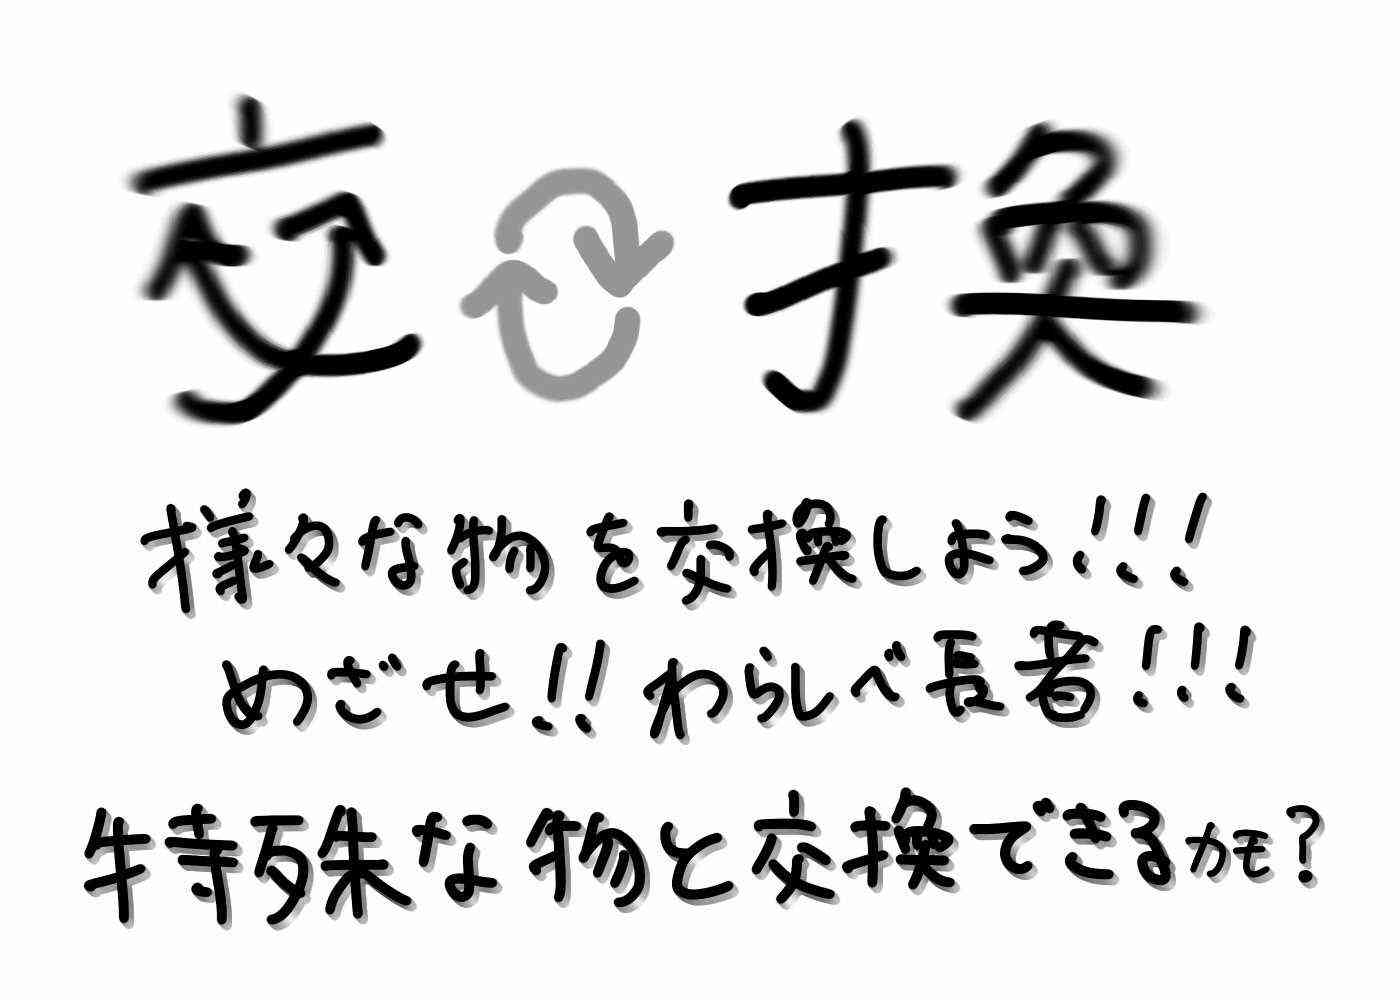 交換
様々な物を交換しよう!!!
めざせ!!わらしべ長者!!!
特殊な物と交換できるカモ?